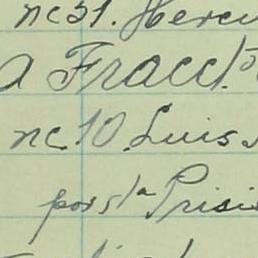 nc 31. Hercu
a Fracc
nc 10 Luis
por sta Prisi